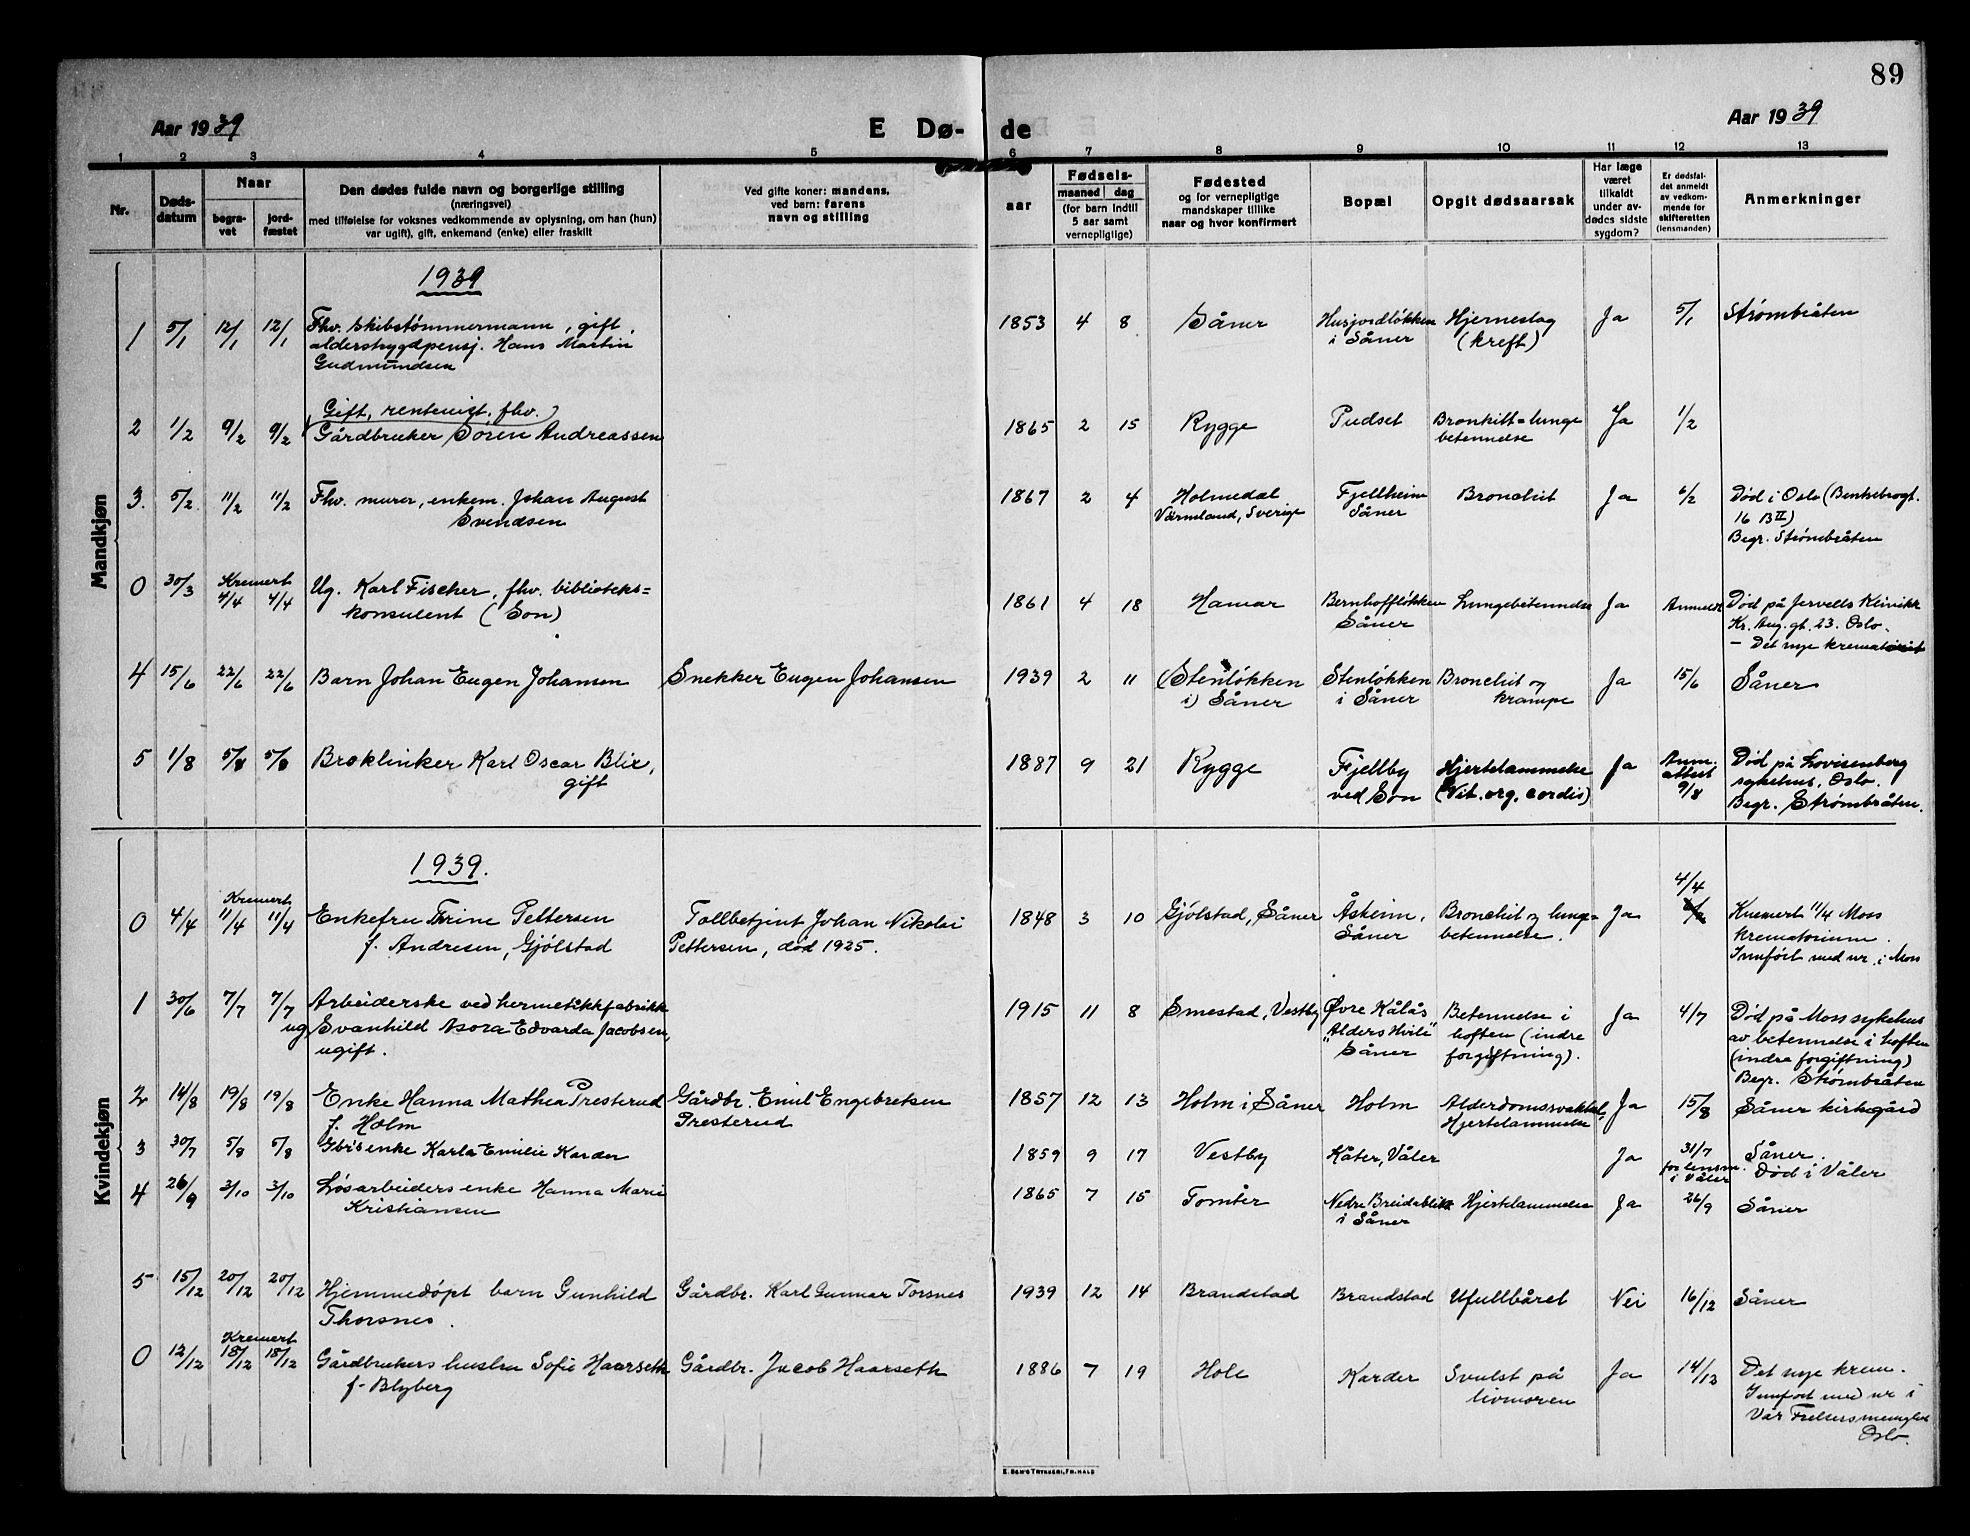 89
Aar 1939
E Dø-
de
Aar 1939
1 2 3 4 5 6 7 8 9 10 11 12 13
Nr.
Døds-
datum
Naar
begra-
vet
jord-
fæstet
Den dødes fulde navn og borgerlige stilling
(næringsvei)
med tilføielse for voksnes vedkommende av oplysning, om han (hun)
var ugift), gift, enkemand (enke) eller fraskilt
Ved gifte koner: mandens,
ved barn: farens
navn og stilling
aar
Fødsels-
maaned dag
(for barn indtil
5 aar samt
vernepligtige)
Fødested
og for vernepligtige
mandskaper tillike
naar og hvor konfirmert
Bopæl
Opgit dødsaarsak
Har læge
været
tilkaldt
under av-
dødes sidste
sygdom?
Er dødsfal-
det anmeldt
av vedkom-
mende for
skifteretten
(lensmanden)
Anmerkninger
Mandkjøn
1939
1 5/1 12/1 12/1 Fhv. skibstømmermann, gift,
alderstrygdpensj. Hans Martin
Gudmundsen
1853 4 8 Såner Husjordløkken
i Såner
Hjerneslag
(kreft)
Ja 5/1 Strømbråten
2 1/2 9/2 9/2 Gift, rentenist, fhv.
Gårdbruker Sören Andreassen
1865 2 15 Rygge Pudset Bronkitt=lunge
betennelse
Ja 1/2
3. 5/2 11/2 11/2 Fhv. murer, enkem. Johan August
Svendsen
1867 2 4 Holmedal
Värmland, Sverige
Fjellheim
Såner
Bronchit Ja 6/2 Död i Oslo (Benkebrogt.
16 B II)
Begr. Strömbråten
0 30/3 Kremert
4/4 4/4 Ug. Karl Fischer, fhv. biblioteks=
konsulent (Son)
1861 4 18 Hamar Bernhoffløkken
Såner
Lungebetennelse Ja Anmeldt Död på Jervells Klinikk
Kr. Aug. gt. 23. Oslo.
— Det nye krematoriet
4 15/6 22/6 22/6 Barn Johan Eugen Johansen Snekker Eugen Johansen
1939 2 11 (Stenløkken
i) Såner
Stenløkken
i Såner
Bronchit og
krampe
Ja 15/6 Såner
5 1/8 5/8 5/8 Broklinker Karl Oscar Blix,
gift
1887 9 21 Rygge Fjellby
ved Son
Hjertelammelse
(Vit. org. cordis)
Ja Anm.
attest
9/8
Död på Lovisenberg
sykehus, Oslo.
Begr. Strömbråten.
Kvindekjøn
1939.
0 4/4 Kremert
11/4 11/4 Enkefru Trine Pettersen
f. Andresen, Gjölstad
Tollbetjent Johan Nikolai
Pettersen, död 1925.
1848 3 10 Gjölstad, Såner Åsheim,
Såner
Bronchit og lunge=
betennelse.
Ja 4/4
Kremert 11/4 Moss
krematorium.
Innfört med nr. i Moss
1 30/6 7/7 7/7 Arbeiderske ved hermetikkfabrikk
ug. Svanhild Asora Edvarda Jacobsen,
ugift.
1915 11 8 Smestad, Vestby Øvre Kålås
"Alders Hvile"
Såner
Betennelse i
hoften (indre
forgiftning).
Ja 4/7 Död på Moss sykehus
av betennelse i hoften
(indre forgiftning)
Begr. Strömbråten
2 14/8 19/8 19/8 Enke Hanna Mathea Presterud
f. Holm
Gårdbr. Emil Engebretsen
Presterud
1857 12 13 Holm i Såner Holm Alderdomssvakhet,
Hjertelammelse
Ja 15/8 Såner kirkegård
3 30/7 5/8 5/8 Gbrs enke Karla Emilie Karder
1859 9 17 Vestby Kåter, Våler Ja 31/7
for lensm.
i Våler
Såner.
Död i Våler
4 26/9 3/10 3/10 Løsarbeiders enke Hanna Marie
Kristiansen
1865 7 15 Tomter Nedre Breidablikk
i Såner
Hjertelammelse Ja 26/9 Såner
5 15/12 20/12 20/12 Hjemmedøpt barn Gunhild
Thorsnes.
Gårdbr. Karl Gunnar Torsnes
1939 12 14 Brandstad Brandstad Ufullbåret Nei 16/12 Såner
0 12/12 Kremert
18/12 18/12 Gårdbrukers hustru Sofie Haarseth
f. Blyberg
Gårdbr. Jacob Haarseth
1886 7 19 Hole Karder Svulst på
livmoren
Ja 14/12 Det nye krem.
Innfört med nr i
Vår Frelsers menighet
Oslo.
E. SEM'S TRYKKERI, FR.HALD